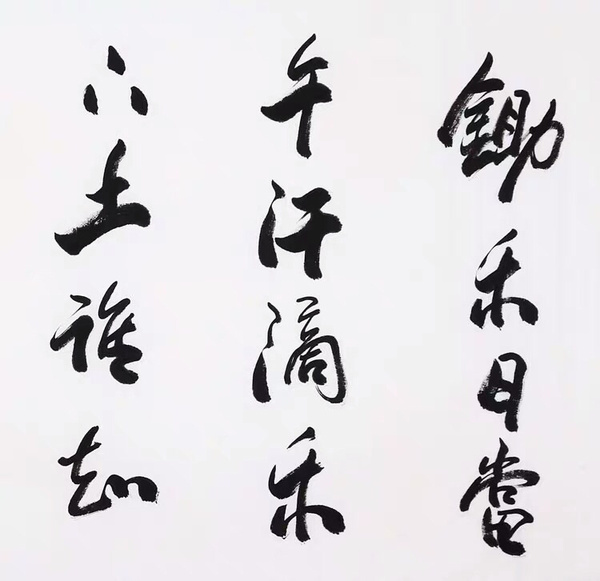 鋤禾日當
午汗滴禾
下土誰知